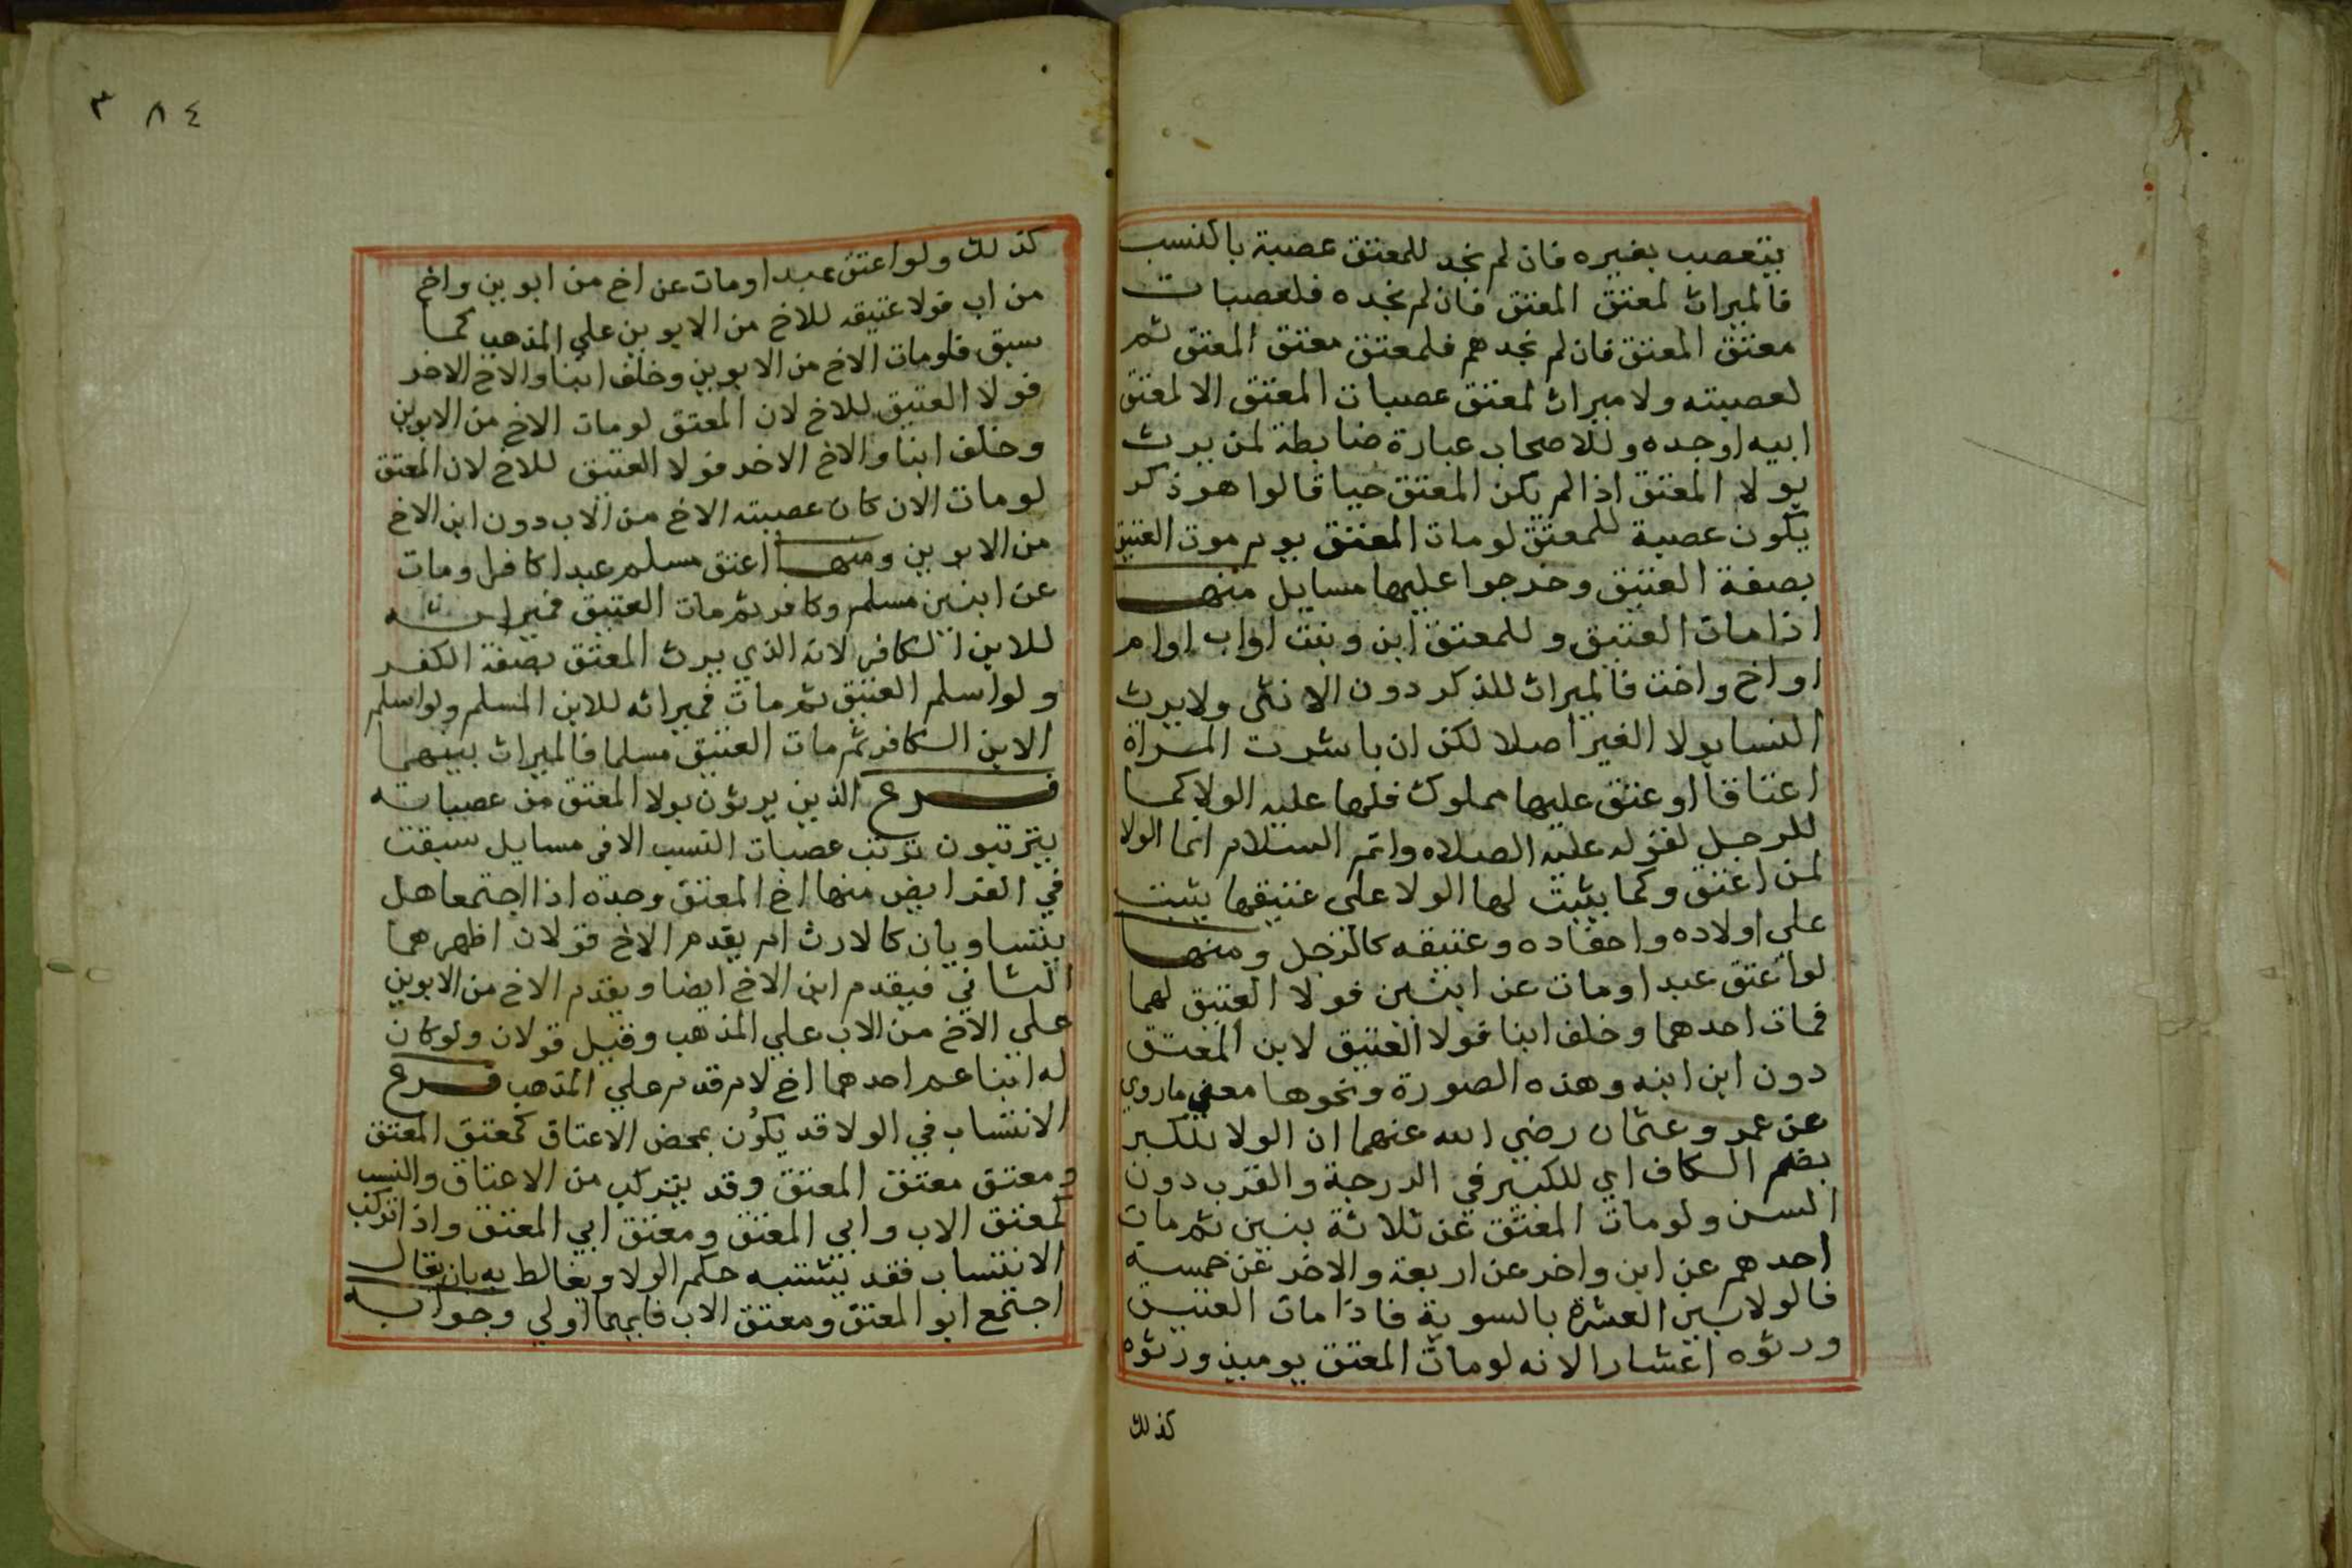 يتعصب بغيره فان لم نجد للمعتق عصبة بالنسب
فالميراث لمعتق المعتق فان لم نجده فلعصبات
معتق المعتق فان لم نجدهم فلمعتق معتق المعتق ثم
لعصبته ولا ميراث لمعتق عصبات المعتق الا لمعتق
ابيه او جده وللاصحاب عبارة ضابطة لمن يرث
بولا المعتق اذا لم يكن المعتق حيا قالوا هو ذكر
يكون عصبة للمعتق لو مات المعتق يوم موت العتيق
بصفة العتيق وخرجوا عليها مسايل منها
اذا مات العتيق وللمعتق ابن وبنت او اب او ام
او اخ واخت فالميراث للذكر دون الانثى ولا يرث
النسا بولا الغير اصلا لكن ان باشرت المراة
اعتاقا او عتق عليها مملوك فلها عليه الولا كما
للرجل لقوله عليه الصلاه واتم السلام انما الولا
لمن اعتق وكما يثبت لها الولا على عتيقها يثبت
على اولاده واحفاده وعتيقه كالرجل ومنها
لو اعتق عبدا ومات عن ابنين فولا العتيق لهما
فمات احدهما وخلف ابنا فولا العتيق لابن المعتق
دون ابن ابنه وهذه الصورة ونحوها معنى ما روي
عن عمر وعثمان رضي الله عنهما ان الولا للكبر
بضم الكاف اي للكبير في الدرجة والقرب دون
السن ولو مات المعتق عن ثلاثة بنين ثم مات
احدهم عن ابن واخر عن اربعة والاخر عن خمسة
فالولا بين العشرة بالسوية فاذا مات العتيق
ورثوه اعشارا لانه لو مات المعتق يوميذ ورثوه
كذلك
٣٨٤
كذلك ولو اعتق عبدا ومات عن اخ من ابوين واخ
من اب فولا عتيقه للاخ من الابوين على المذهب كما
سبق فلو مات الاخ من الابوين وخلف ابنا والاخ الاخر
فولا العتيق للاخ لان المعتق لو مات الاخ من الابوين
وخلف ابنا والاخ الاخر فولا العتيق للاخ لان المعتق
لو مات الان كان عصبته الاخ من الاب دون ابن الاخ
من الابوين ومنها اعتق مسلم عبدا كافرا ومات
عن ابنين مسلم وكافر ثم مات العتيق فميراثه
للابن الكافر لانه الذي يرث المعتق بصفة الكفر
ولو اسلم العتيق ثم مات فميراثه للابن المسلم ولو اسلم
الابن الكافر ثم مات العتيق مسلما فالميراث بينهما
فرع الذين يرثون بولا المعتق من عصباته
يترتبون ترتب عصبات النسب الا في مسايل سبقت
في الفرايض منها اخ المعتق وجده اذا اجتمعا هل
يتساويان كالارث ام يقدم الاخ قولان اظهرهما
الثاني فيقدم ابن الاخ ايضا ويقدم الاخ من الابوين
على الاخ من الاب علي المذهب وقيل قولان ولو كان
له ابنا عم احدهما اخ لام قدم علي المذهب فرع
الانتساب في الولا قد يكون بمحض الاعتاق كمعتق المعتق
ومعتق معتق المعتق وقد يتركب من الاعتاق والنسب
كمعتق الاب وابي المعتق ومعتق ابي المعتق واذا تركب
الانتساب فقد يشتبه حكم الولا ويغالط به بان يقال
اجتمع ابو المعتق ومعتق الاب فايهما اولي وجوابه